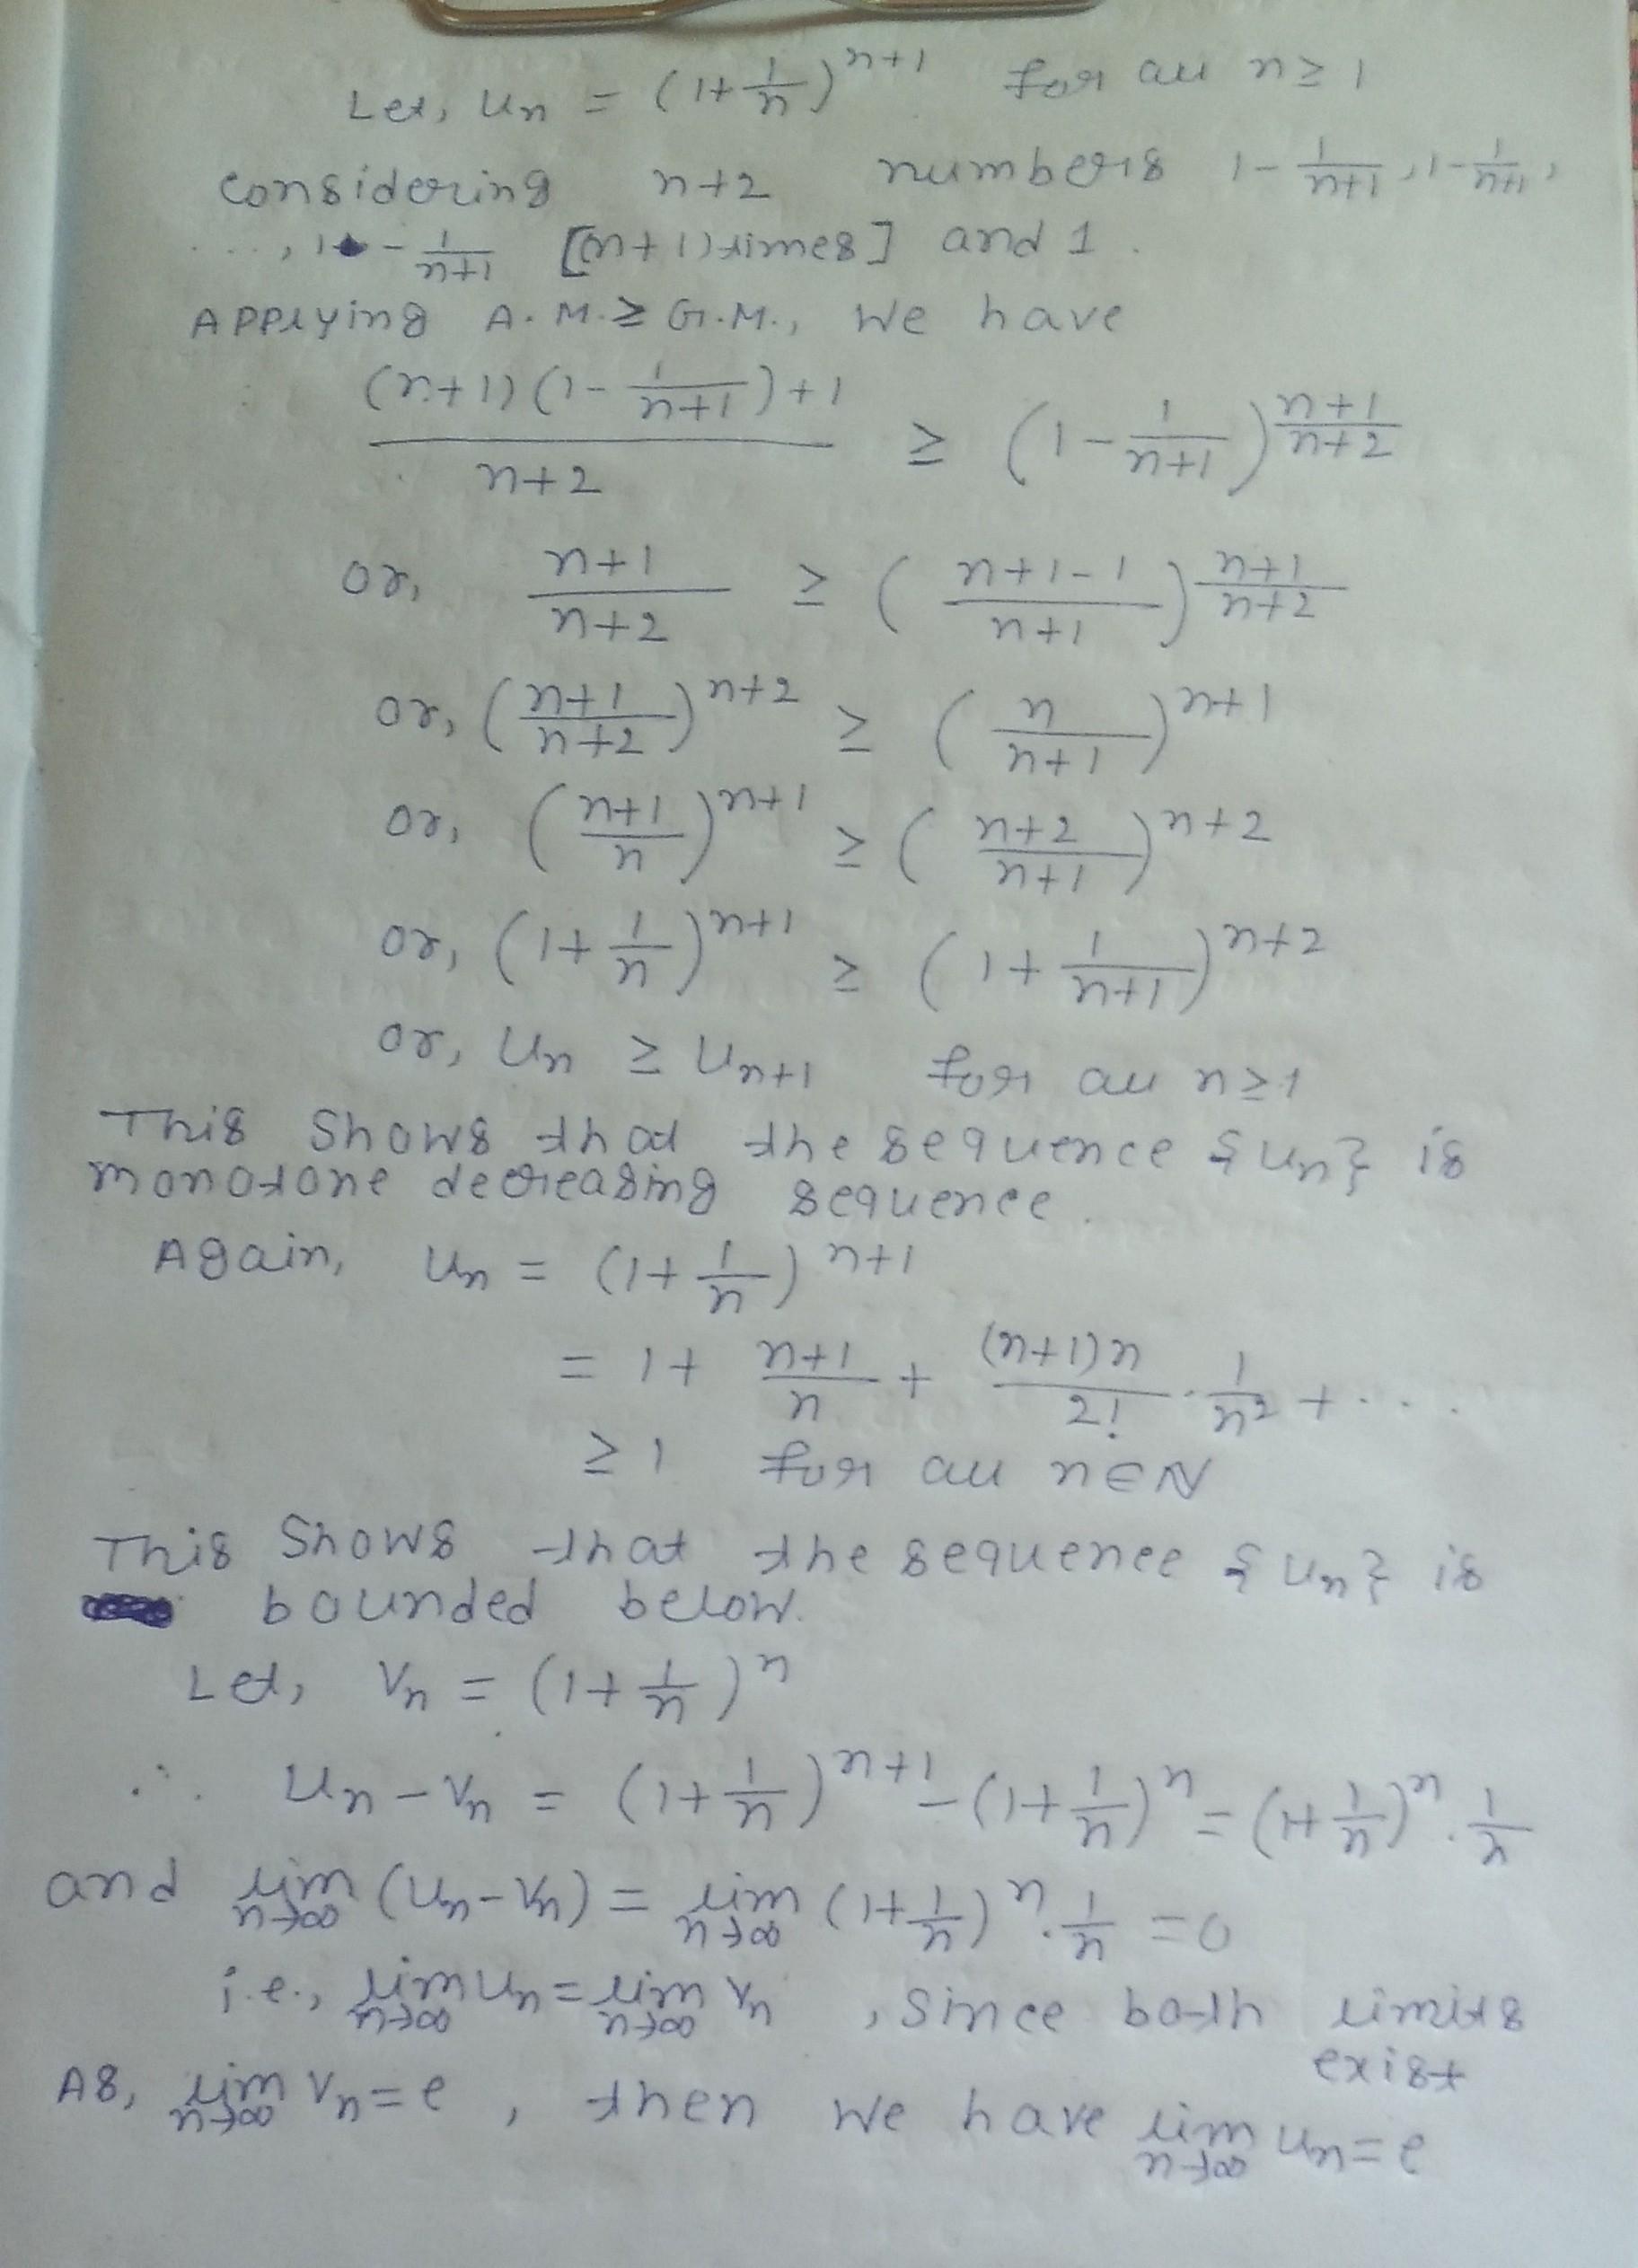 Let, uₙ = (1+1/n)ⁿ⁺¹ for all n ≥ 1
considering n+2 numbers 1 - 1/(n+1), 1 - 1/(n+1),
..., 1 - 1/(n+1) [(n+1) times] and 1.
Applying A.M. ≥ G.M., we have
((n+1)(1 - 1/(n+1)) + 1)/(n+2) ≥ (1 - 1/(n+1))^((n+1)/(n+2))
or, (n+1)/(n+2) ≥ ((n+1-1)/(n+1))^((n+1)/(n+2))
or, ((n+1)/(n+2))ⁿ⁺² ≥ (n/(n+1))ⁿ⁺¹
or, ((n+1)/n)ⁿ⁺¹ ≥ ((n+2)/(n+1))ⁿ⁺²
or, (1+1/n)ⁿ⁺¹ ≥ (1 + 1/(n+1))ⁿ⁺²
or, uₙ ≥ uₙ₊₁ for all n ≥ 1
This shows that the sequence {uₙ} is
monotone decreasing sequence.
Again, uₙ = (1+1/n)ⁿ⁺¹
= 1 + (n+1)/n + ((n+1)n)/2! · 1/n² + ....
≥ 1 for all n ∈ N
This shows that the sequence {uₙ} is
bounded below.
Let, vₙ = (1+1/n)ⁿ
∴ uₙ - vₙ = (1+1/n)ⁿ⁺¹ - (1+1/n)ⁿ = (1+1/n)ⁿ · 1/n
and lim n→∞ (uₙ - vₙ) = lim n→∞ (1+1/n)ⁿ · 1/n = 0
i.e., lim n→∞ uₙ = lim n→∞ vₙ , since both limits
exist
As, lim n→∞ vₙ = e , then we have lim n→∞ uₙ = e